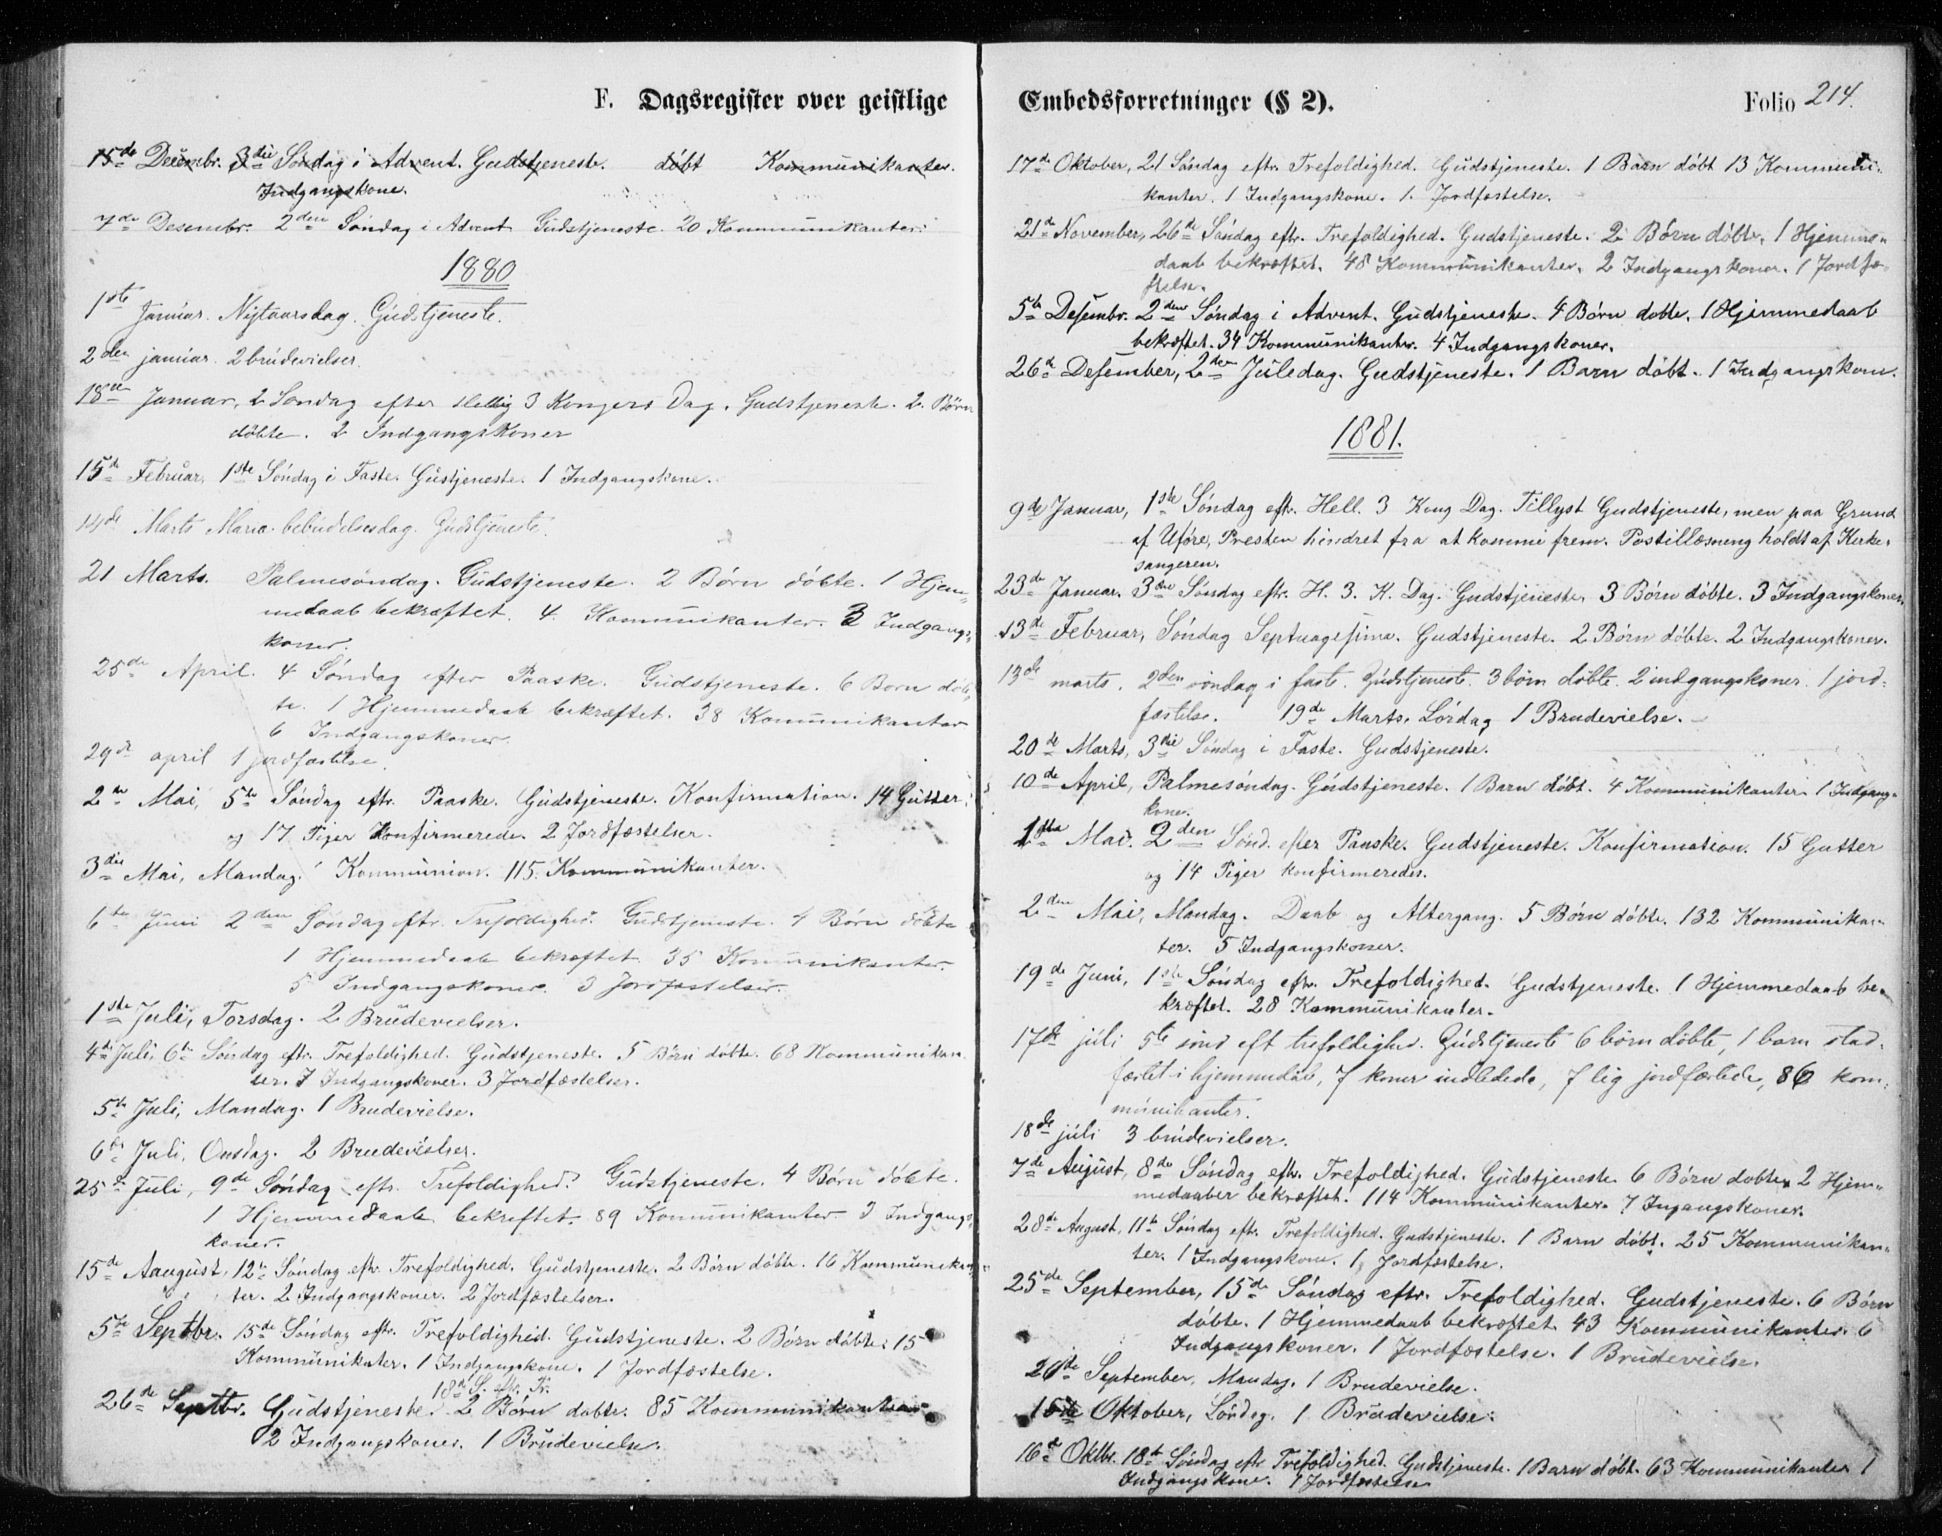 F. Dagsregister over geistlige
15de Decembr. 3die Søndag i Advent. Gudstjeneste. døbt Kommunikanter.
Indgangskone.
7de Desembr. 2den Søndag i Advent Gudstjeneste. 20 Kommunikanter.
1880
1ste Januar. Nytaarsdag. Gudstjeneste.
2den januar. 2 brudevielser.
18de Januar, 2 Søndag efter Hellig 3 Kongers Dag. Gudstjeneste. 2 Børn
døbte. 2 Indgangskoner
15de Februar, 1ste Søndag i Faste. Gustjeneste. 1 Indgangskone.
14de Marts Maria bebudelsesdag. Gudstjeneste.
21 Marts. Palmesøndag. Gudstjeneste. 2 Børn døbte. 1 Hjem-
medaab bekræftet. 4 Kommunikanter. 3 Indgangs-
koner.
25de April. 4 Søndag efter Paaske. Gudstjeneste. 6 Børn døb-
te. 1 Hjemmedaab bekræftet. 38 Kommunikanter
6 Indgangskoner
29de april 1 jordfæstelse.
2den Mai, 5te Søndag eftr. Paaske. Gudstjeneste. Konfirmation. 14 Gutter
og 17 Piger konfirmerede. 2 Jordfæstelser.
3die Mai, Mandag. Kommunion. 115 Kommunikanter.
6te Juni 2den Søndag eftr. Trefoldighed. Gudstjeneste. 4 Børn døbte
1 Hjemmedaab bekræftet 35 Kommunikanter.
5 Indgangskoner. 3 Jordfæstelser.
1ste Juli, Torsdag. 2 Brudevielser.
4de Juli, 6te Søndag eftr. Trefoldighed. Gudstjeneste. 5 Børn døbte. 68 Kommunikan-
ter. 7 Indgangskoner. 3 Jordfæstelser.
5te Juli, Mandag. 1 Brudevielse.
6te Juli, Onsdag. 2 Brudevielser.
25de Juli, 9de Søndag eftr. Trefoldighed. Gudstjeneste. 4 Børn døbte.
1 Hjemmedaab bekreftet. 89 Kommunikanter 3 Indgangs-
koner.
15de Aaugust, 12te Søndag eftr. Trefoldighed. Gudstjeneste. 2 Børn døbte. 16 Kommunikan-
ter. 2 Indgangskoner. 2 Jordfæstelser.
5te Septbr. 15de Søndag eftr. Trefoldighed. Gudstjeneste. 2 Børn døbte. 15
Kommunikater. 1 Indgangskone. 1 Jordfæstelse.
18de S. eftr. Tr.
26de Septbr. Gudstjeneste. 2 Børn døbte. 85 Kommunikanter
2 Indgangskoner. 1 Brudevielse.
Embedsforretninger (§ 2). Folio 214.
17de Oktober, 21 Søndag eftr. Trefoldighed. Gudstjeneste. 1 Barn døbt 13 Kommuni-
kanter. 1 Indgangskone. 1 Jordfæstelse.
21de November, 26de Søndag eftr. Trefoldighed. Gudstjeneste. 2 Børn døbte, 1 Hjemme-
daab bekræftet. 48 Kommunikanter. 2 Indgangskoner. 1 Jordfæ-
stelse.
5te Desembr. 2den Søndag i Advent. Gudstjeneste. 4 Børn døbte. 1 Hjemmedaab
bekræftet. 34 Kommunikantr. 4 Indgangskoner.
26de Desember, 2den Juledag. Gudstjeneste. 1 Barn døbt. 1 Indgangskone.
1881.
9de Januar, 1ste Søndag eftr. Hell. 3 Kong Dag. Tillyst Gudstjeneste, men paa Grund
af Uføre, Presten hindret fra at komme frem. Postillæsning holdt af Kirke-
sangeren.
23de Januar. 3die Søndag eftr. H. 3. K. Dag. Gudstjeneste. 3 Børn døbte. 3 Indgangskoner.
13de Februar, Søndag Septuagesima. Gudstjeneste. 2 Børn døbte. 2 Indgangskoner.
13de marts. 2den søndag i faste. Gudstjeneste. 3 børn døbte. 2 indgangskoner. 1 jord-
fæstelse. 19de Marts, Lørdag 1 Brudevielse.
20de Marts, 3die Søndag i Faste. Gudstjeneste.
10de April, Palmesøndag. Gudstjeneste. 1 Barn døbt. 4 Kommunikanter. 1 Indgangs-
kone.
1ste Mai. 2den Sønd. efter Paaske. Gudstjeneste. Konfirmation. 15 Gutter
og 14 Piger konfirmeredes.
2den Mai, Mandag. Daab og Altergang. 5 Børn døbte. 132 Kommunikan-
ter. 5 Indgangskoner.
19de Juni, 1ste Søndag eftr. Trefoldighed. Gudstjeneste. 1 Hjemmedaab be-
kræftet. 28 Kommunikanter.
17de juli 5te sønd eft trefoldighed. Gudstjeneste 6 børn døbte, 1 barn stad-
fæstet i hjemmedåb, 7 koner indledede, 7 lig jordfæstede, 86 kom-
munikanter.
18de juli 3 brudevielser.
7de August, 8de Søndag eftr. Trefoldighed. Gudstjeneste 6 Børn døbte. 2 Hjem-
medaaber bekræftet. 114 Kommunikanter. 7 Ingangskoner.
28de August, 11te Søndag eftr. Trefoldighed. Gudstjeneste. 1 Barn døbt. 25 Kommunikan-
ter. 1 Indgangskone. 1 Jordfæstelse.
25de September, 15de Søndag eftr. Trefoldighed. Gudstjeneste. 6 Børn
døbte. 1 Hjemmedaab bekræftet 43 Kommunikanter. 6
Indgangskoner. 1 Jordfæstelse. 1 Brudevielse.
26de September, Mandag. 1 Brudevielse.
15de Oktober, Lørdag. 1 Brudevielse.
16de Oktbr. 18de Søndag eftr Trefoldighed. Gudstjeneste. 1 Barn døbt. 63 Kommunikanter 1
Indgangskone. 1 Jordfæstelse